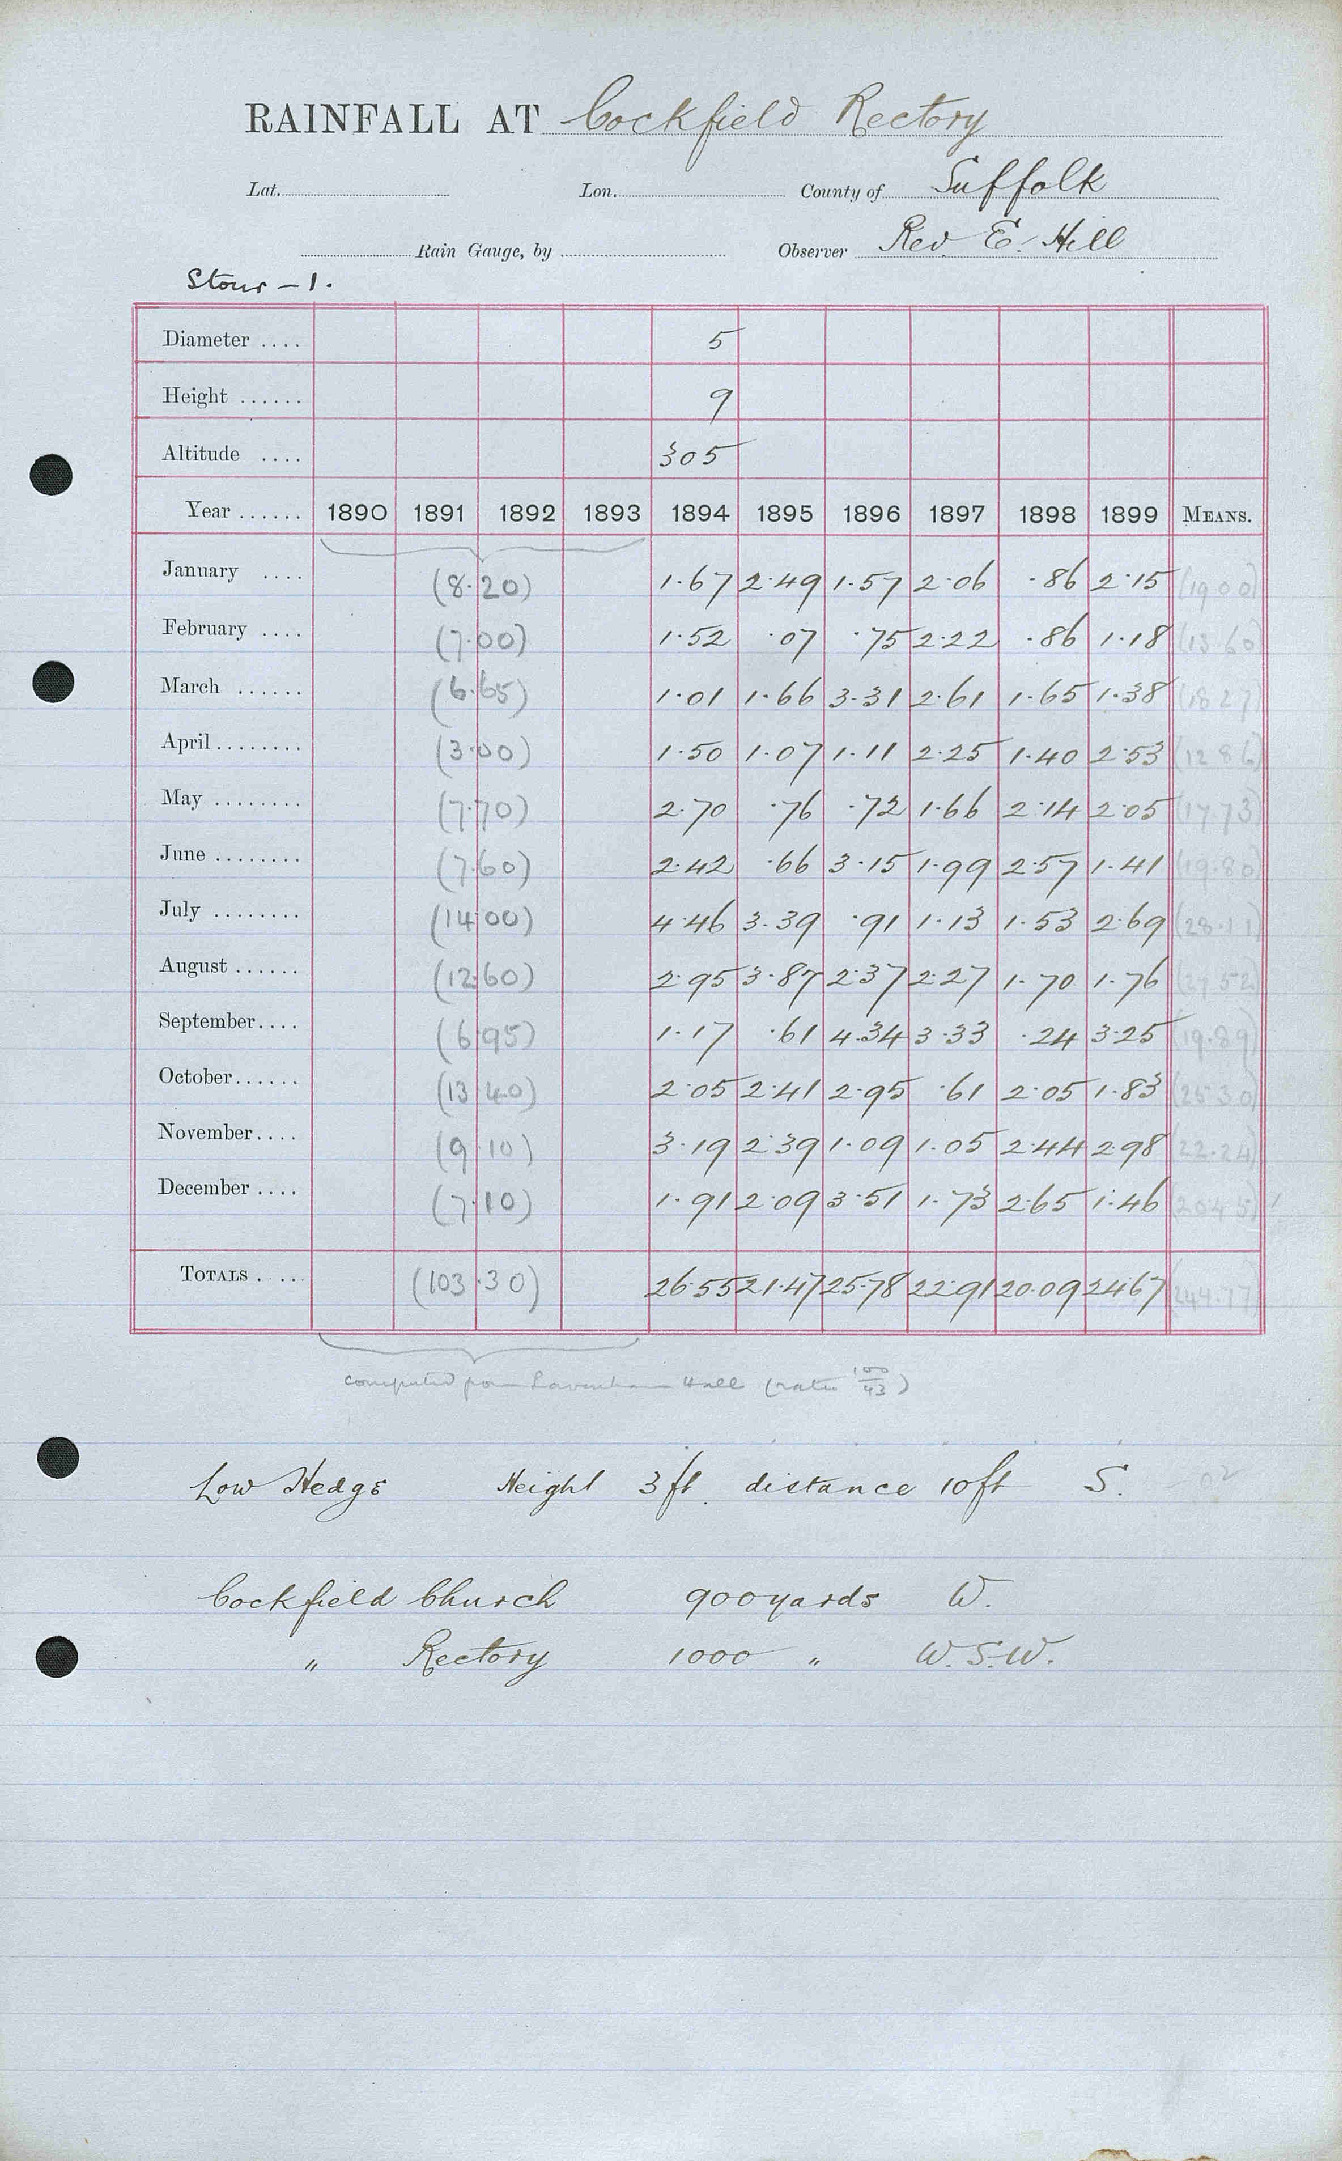 RAINFALL AT Cockfield Rectory
Lat. Lon. County of Suffolk
Rain Gauge, by Observer Rev. E. Hill
Stour - 1.
Diameter .... 5
Height ...... 9
Altitude .... 305
Year ...... 1890 1891 1892 1893 1894 1895 1896 1897 1898 1899 MEANS.
January .... (8.20) 1.67 2.49 1.57 2.06 .86 2.15 (19.00)
February .... (7.00) 1.52 .07 .75 2.22 .86 1.18 (13.60)
March ...... (6.65) 1.01 1.66 3.31 2.61 1.65 1.38 (18.27)
April ........ (3.00) 1.50 1.07 1.11 2.25 1.40 2.53 (12.86)
May ........ (7.70) 2.70 .76 .72 1.66 2.14 2.05 (17.73)
June ........ (7.60) 2.42 .66 3.15 1.99 2.57 1.41 (19.80)
July ........ (14.00) 4.46 3.39 .91 1.13 1.53 2.69 (28.11)
August ...... (12.60) 2.95 3.87 2.37 2.27 1.70 1.76 (27.52)
September.... (6.95) 1.17 .61 4.34 3.33 .24 3.25 (19.89)
October...... (13.40) 2.05 2.41 2.95 .61 2.05 1.83 (25.30)
November.... (9.10) 3.19 2.39 1.09 1.05 2.44 2.98 (22.24)
December .... (7.10) 1.91 2.09 3.51 1.73 2.65 1.46 (20.45)
TOTALS . ... (103.30) 26.55 21.47 25.78 22.91 20.09 24.67 (244.77)
computed from Lavenham Hall (ratio 100/93)
Low Hedge Height 3 ft. distance 10 ft S.
Cockfield Church 900 yards W.
" Rectory 1000 " W.S.W.